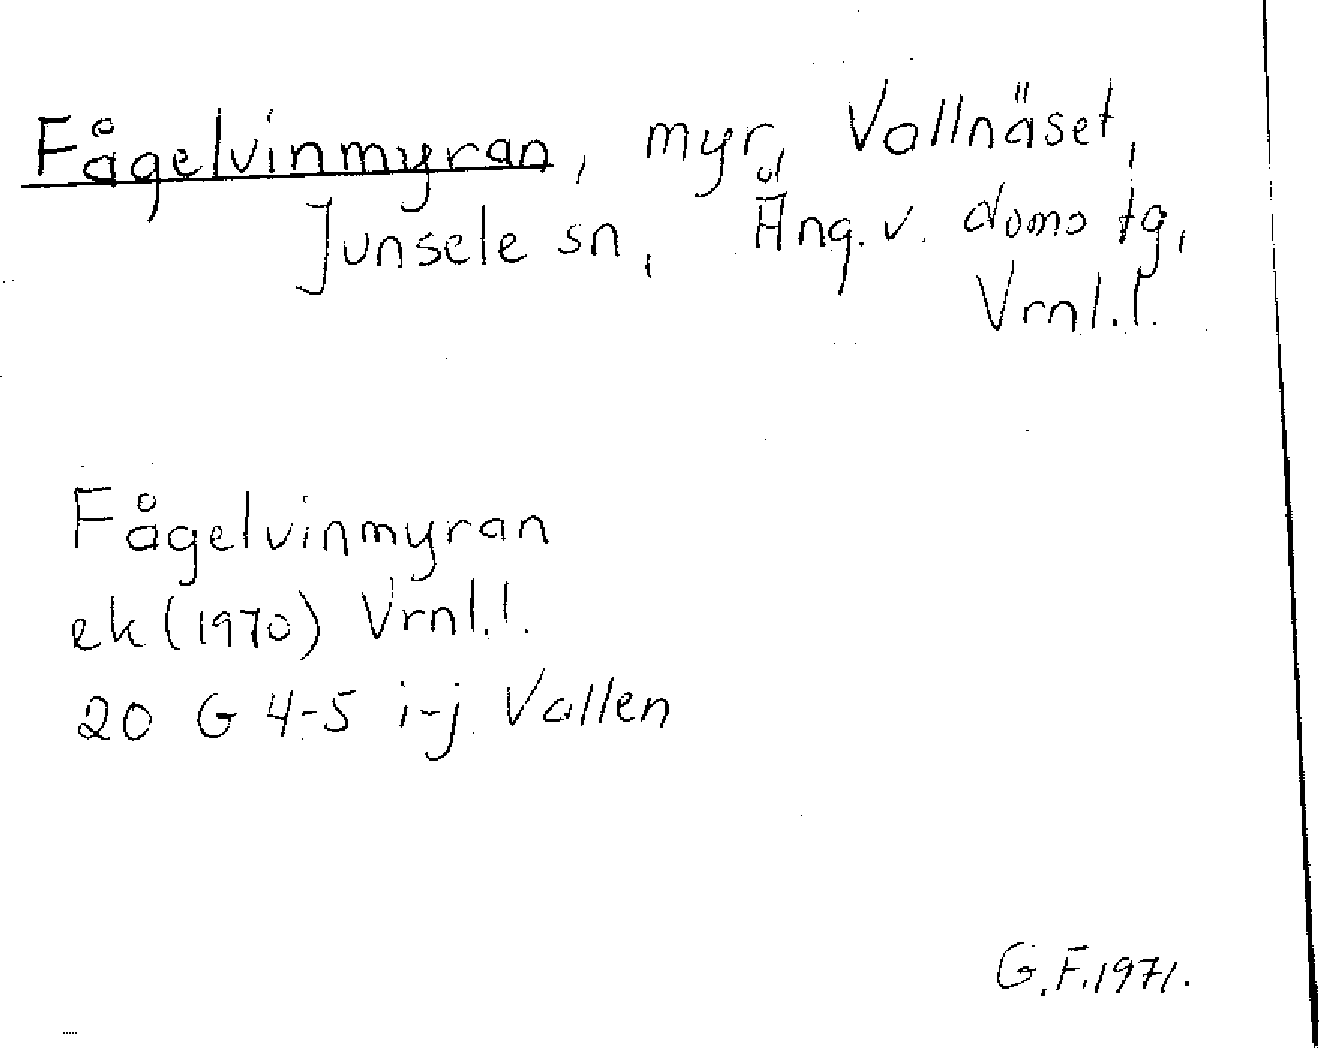 Fågelvinmyran, myr, Vallnäset,
Junsele sn, Äng. v. doms tg,
Vrnl.l.
Fågelvinmyran
ek (1970) Vrnl.l.
20 G 4-5 i-j Vallen
G.F. 1971.